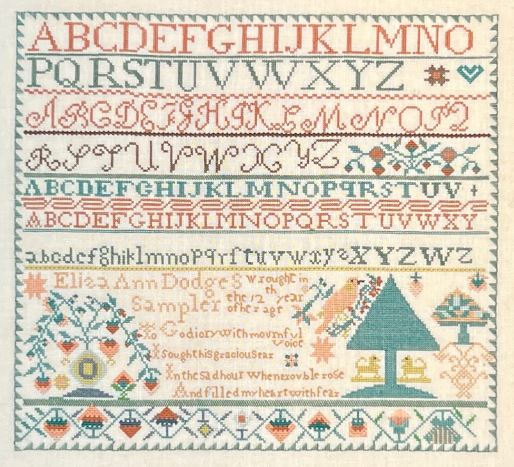 ABCDEFGHIJKLMNO
PQRSTUVWXYZ
ABCDEFGHIKLMNOPQ
RSTUVWXYZ
ABCDEFGHIJKLMNOPQRSTUV
ABCDEFGHIJKLMNOPQRSTUVWXY
abcdefghiklmnopqrſtuvwxyzXYZWZ
Eliza Ann Dodges wrought in
Sampler & the 12 year
of her age
God i cry with mournful
voice
I sought his gracious ear
In the sad hour when trouble rose
And filled my heart with fear